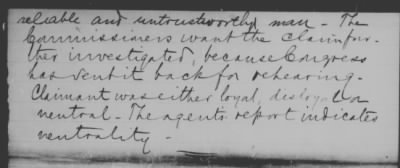 reliable and untrustworthy man - The
Commissioners want the claim fur-
ther investigated, because Congress
has sent it back for rehearing.
Claimant was either loyal, disloyal or
neutral - The agents report indicates
neutrality -